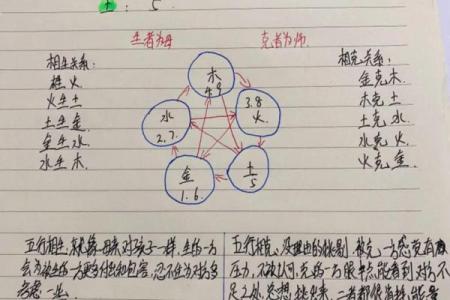 土: 5
生者为母 克者为师
相生关系:
木生火
火生土
土生金
金生水
水生木
木
4.9
3.8
火
土
5
金
1.6
水
2.7
相克关系:
金克木
木克土
土克水
水克火
火克金
五行相生,就像母亲对孩子一样,生的一方
会为被生的一方更多付出和包容,忍不住为对方多
考虑一些
五行相克,没理由的挑剔,被克一方感觉有
压力,不被认可,克的一方眼里总能看到对方不
足之处,总想挑出来,二者都很